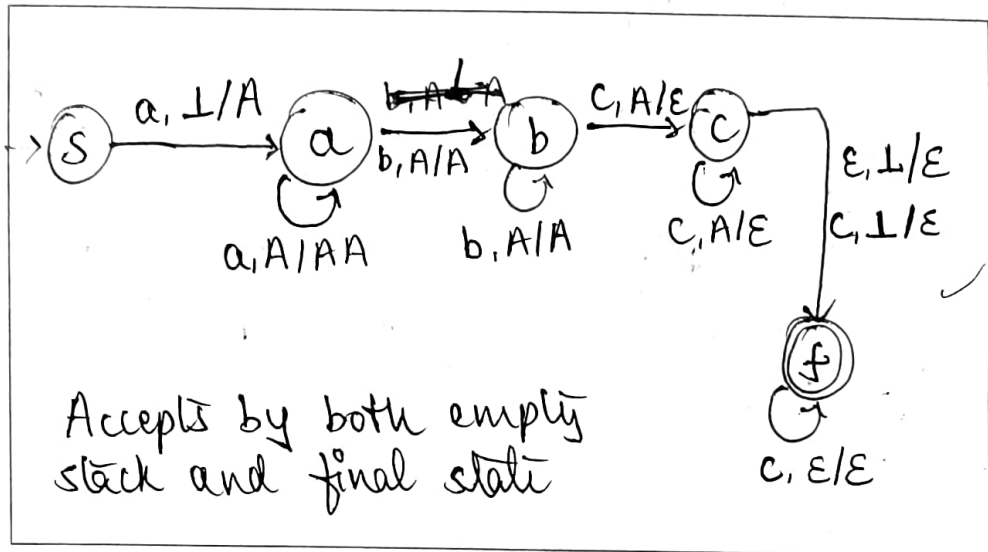 a, ⊥/A
b, A/A
c, A/ε
S
a
b
c
a, A/AA
b, A/A
c, A/ε
ε, ⊥/ε
c, ⊥/ε
f
c, ε/ε
Accepts by both empty
stack and final state